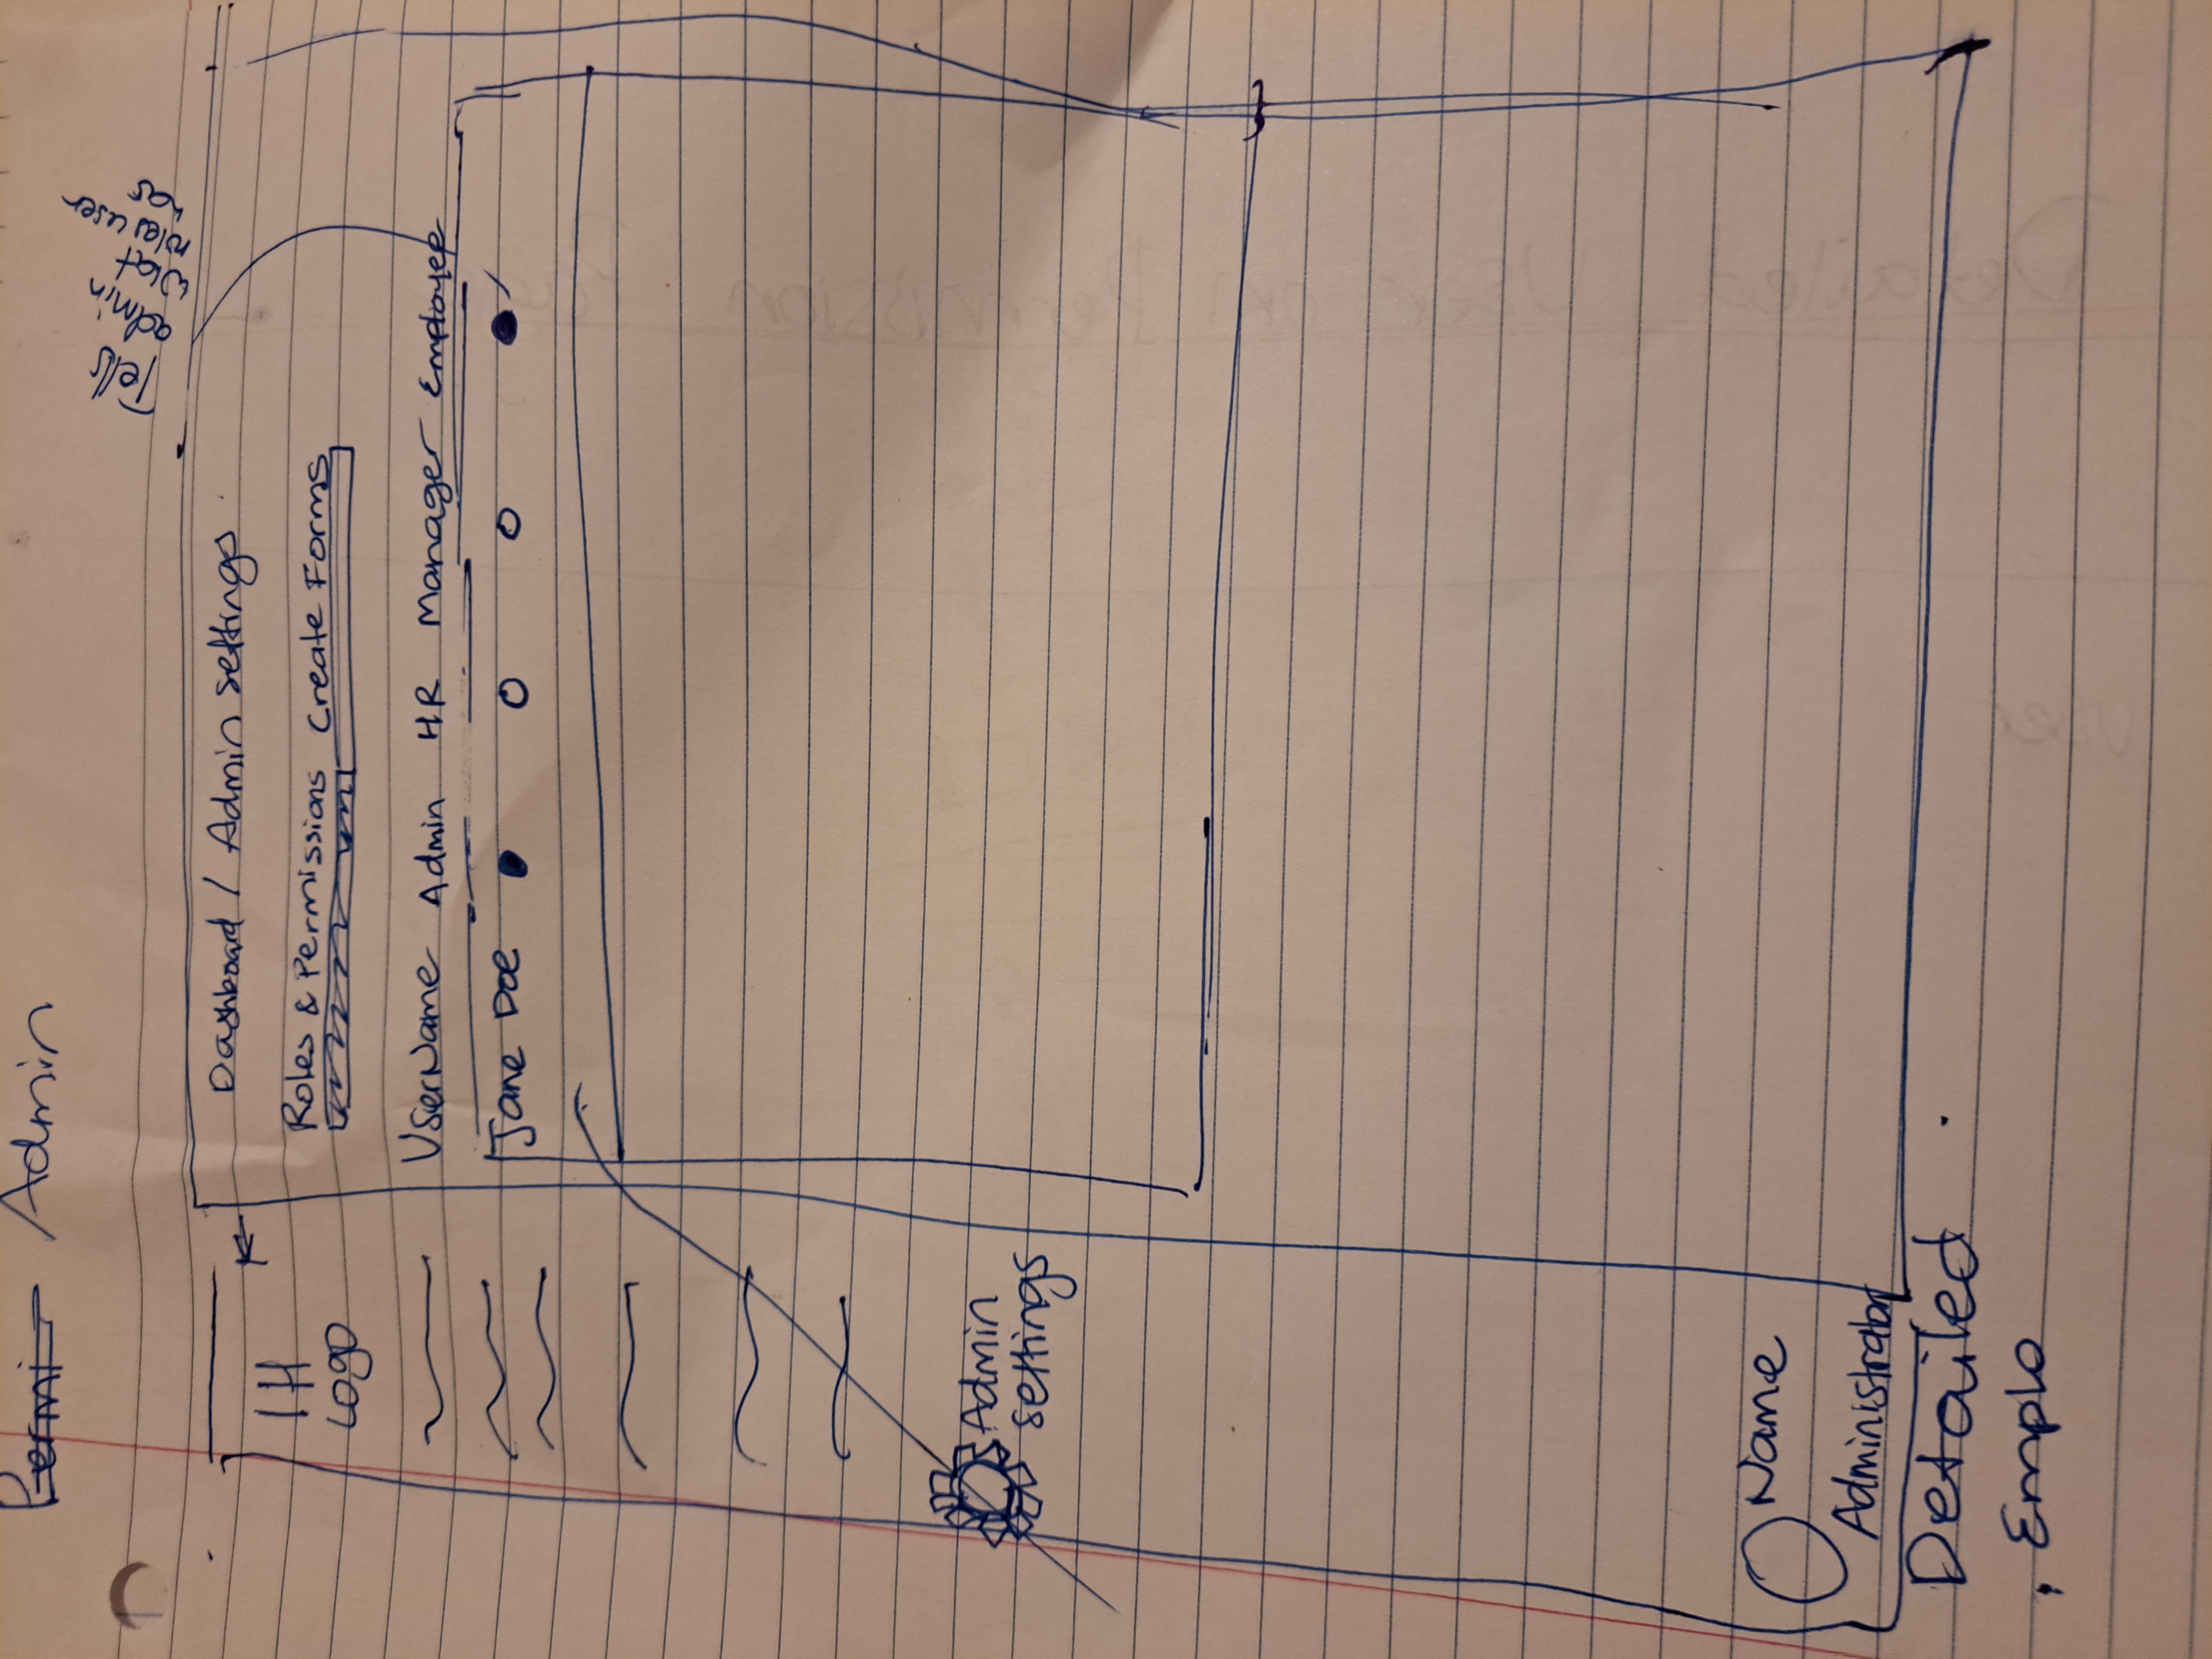 Permi Admin
Tells
admin
what
roles user
has
Dashboard / Admin settings
IH
Logo
Roles & Permissions Create Forms
UserName Admin HR Manager Employee
Jane Doe
Admin
settings
Name
Administrator
Detailed
. Emplo